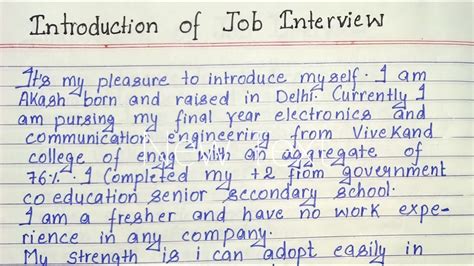 Introduction of Job Interview
It's my pleasure to introduce myself. I am
Akash born and raised in Delhi. Currently I
am pursing my final year electronics and
communication engineering from Vivekand
college of engg with an aggregate of
76%. I Completed my +2 from government
co education senior secondary school.
I am a fresher and have no work expe-
rience in any company.
My strength is i can adopt easily in